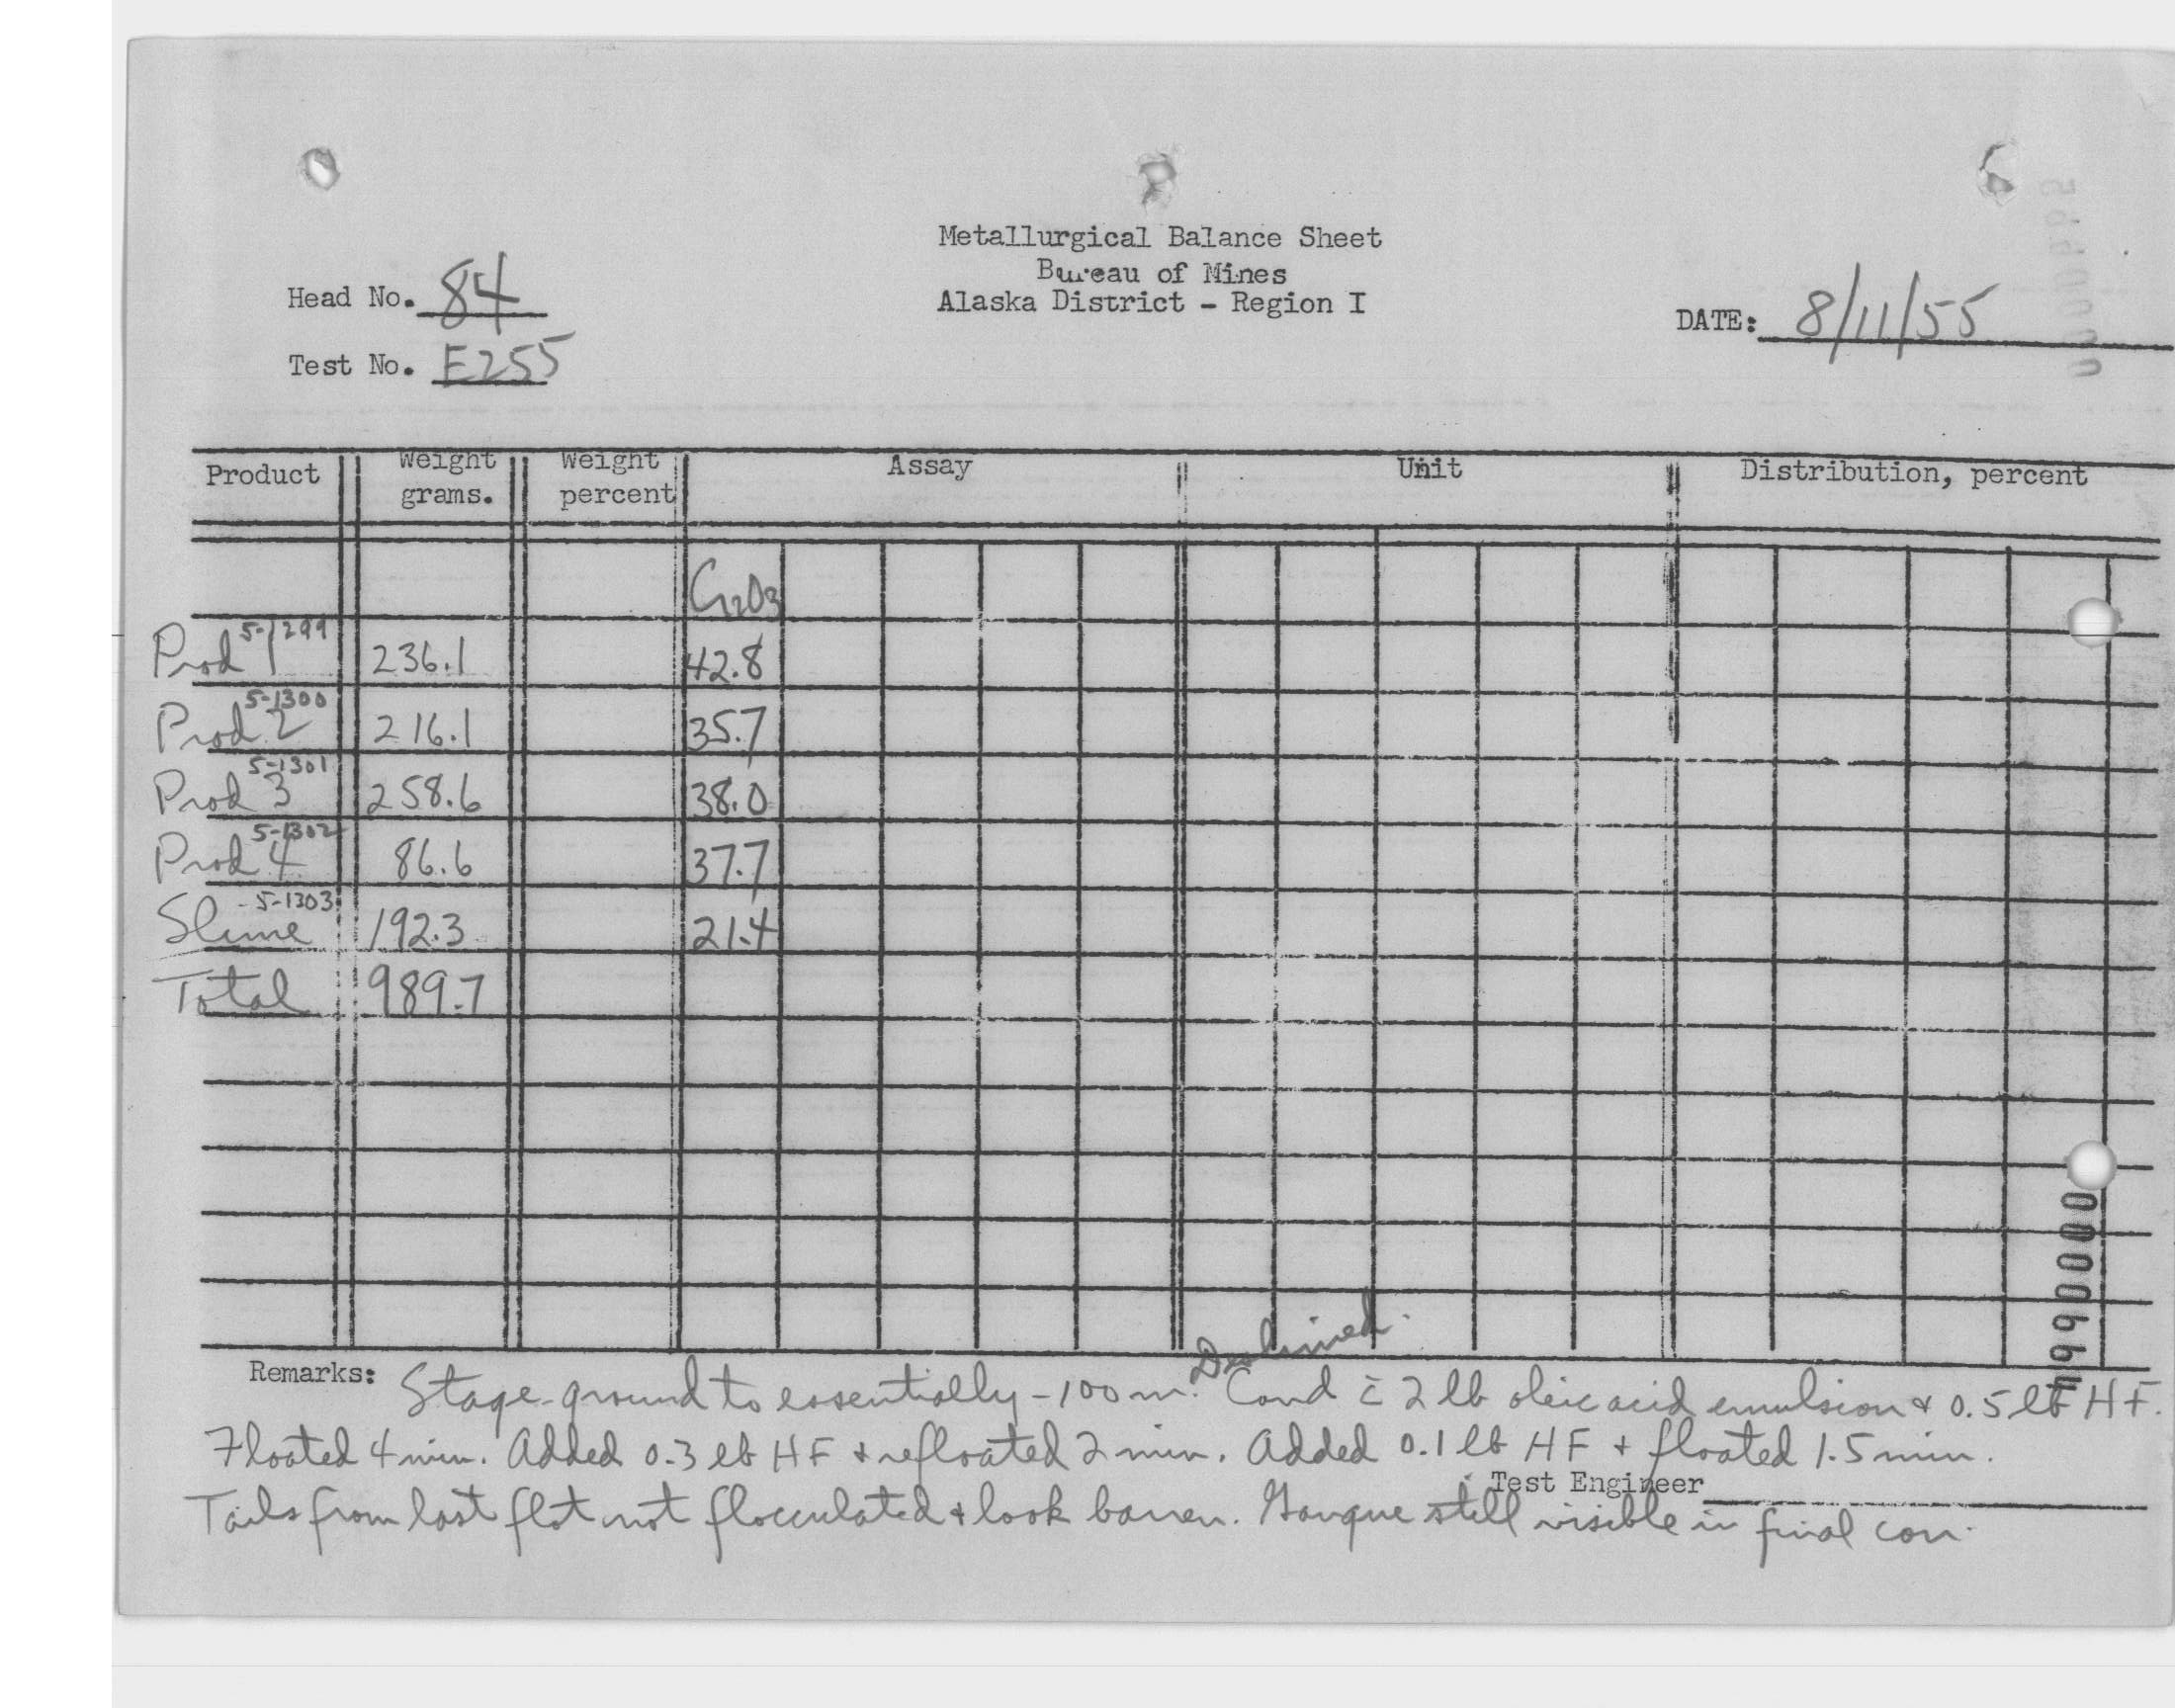 Metallurgical Balance Sheet
Bureau of Mines
Alaska District - Region I
Head No. 84
Test No. E255
DATE: 8/11/55
Product Weight grams. Weight percent Assay Unit Distribution, percent
Cr2O3
Prod 1 5-1299 236.1 42.8
Prod 2 5-1300 216.1 35.7
Prod 3 5-1301 258.6 38.0
Prod 4 5-1302 86.6 37.7
Slime - 5-1303 192.3 21.4
Total 989.7
Remarks: Stage-ground to essentially -100 m. Deslimed. Cond c̄ 2 lb oleic acid emulsion & 0.5 lb HF.
Floated 4 min. Added 0.3 lb HF & refloated 2 min. Added 0.1 lb HF & floated 1.5 min.
Test Engineer
Tails from last flot not flocculated & look barren. Gangue still visible in final con.